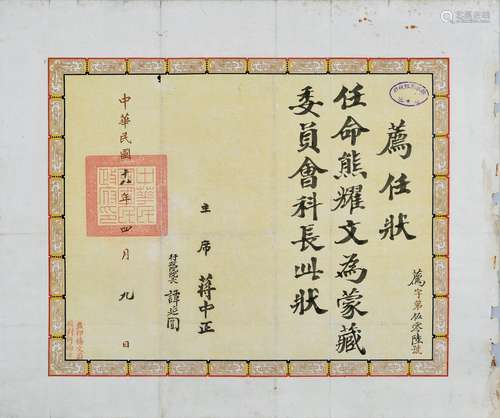 薦字第伍零陸號
薦任狀
任命熊耀文為蒙藏
委員會科長此狀
主席 蔣中正
行政院院長 譚延闓
中華民國十八年四月九日